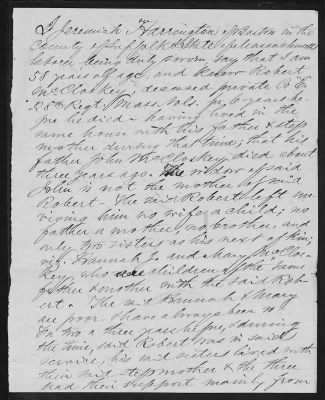 I Jeremiah Harrington of Boston in the
County of Suffolk & State of Massachusetts
laborer, being duly sworn, say that I am
58 years of age, and knew Robert
McCloskey, deceased, private Co. E.
28th Regt. Mass. Vols. for 6 years be-
fore he died - having lived in the
same house with his father & step
mother during that time; that his
father John McCloskey, died about
three years ago. The widow of said
John is not the mother of said
Robert - The said Robert left sur-
viving him no wife or child; no
father or mother, no brother, and
only two sisters as his next of kin;
viz. Hannah J. and Mary McClos-
key, who were children of the same
father & mother with the said Rob-
ert. The said Hannah & Mary
are poor & have always been so
For two or three years before, & during
the time, said Robert was in said
service, his said sisters lived with
their said stepmother & the three
had their support mainly from